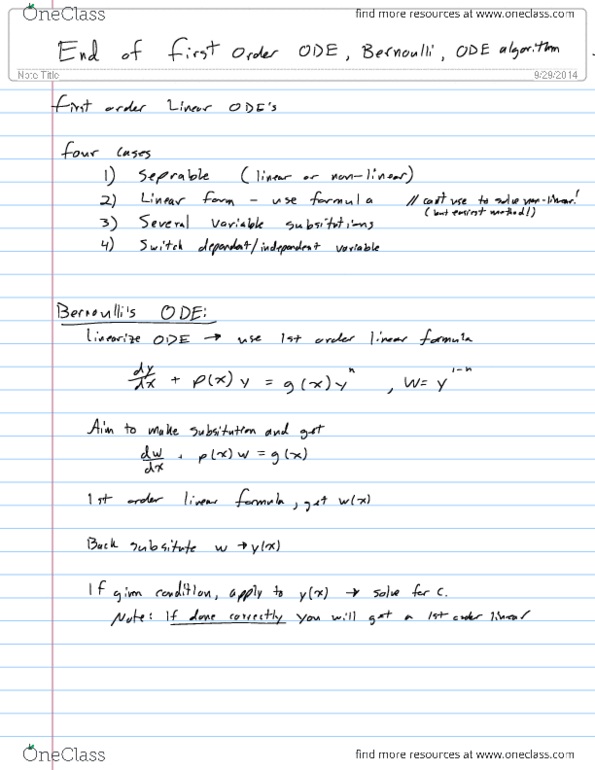 OneClass find more resources at www.oneclass.com
End of first order ODE, Bernoulli, ODE algorithm
Note Title 9/29/2014
first order Linear ODE's
four cases
1) Seprable (linear or non-linear)
2) Linear form - use formula // can't use to solve non-linear!
(but easiest method!)
3) Several variable subsitutions
4) Switch dependent/independent variable
Bernoulli's ODE:
linearize ODE → use 1st order linear formula
dy/dx + p(x) y = g(x) y^n , W = y^(1-n)
Aim to make subsitution and get
dw/dx + p(x) w = g(x)
1st order linear formula, get w(x)
Back subsitute w → y(x)
If given condition, apply to y(x) → solve for c.
Note: If done correctly you will get a 1st order linear
OneClass find more resources at www.oneclass.com